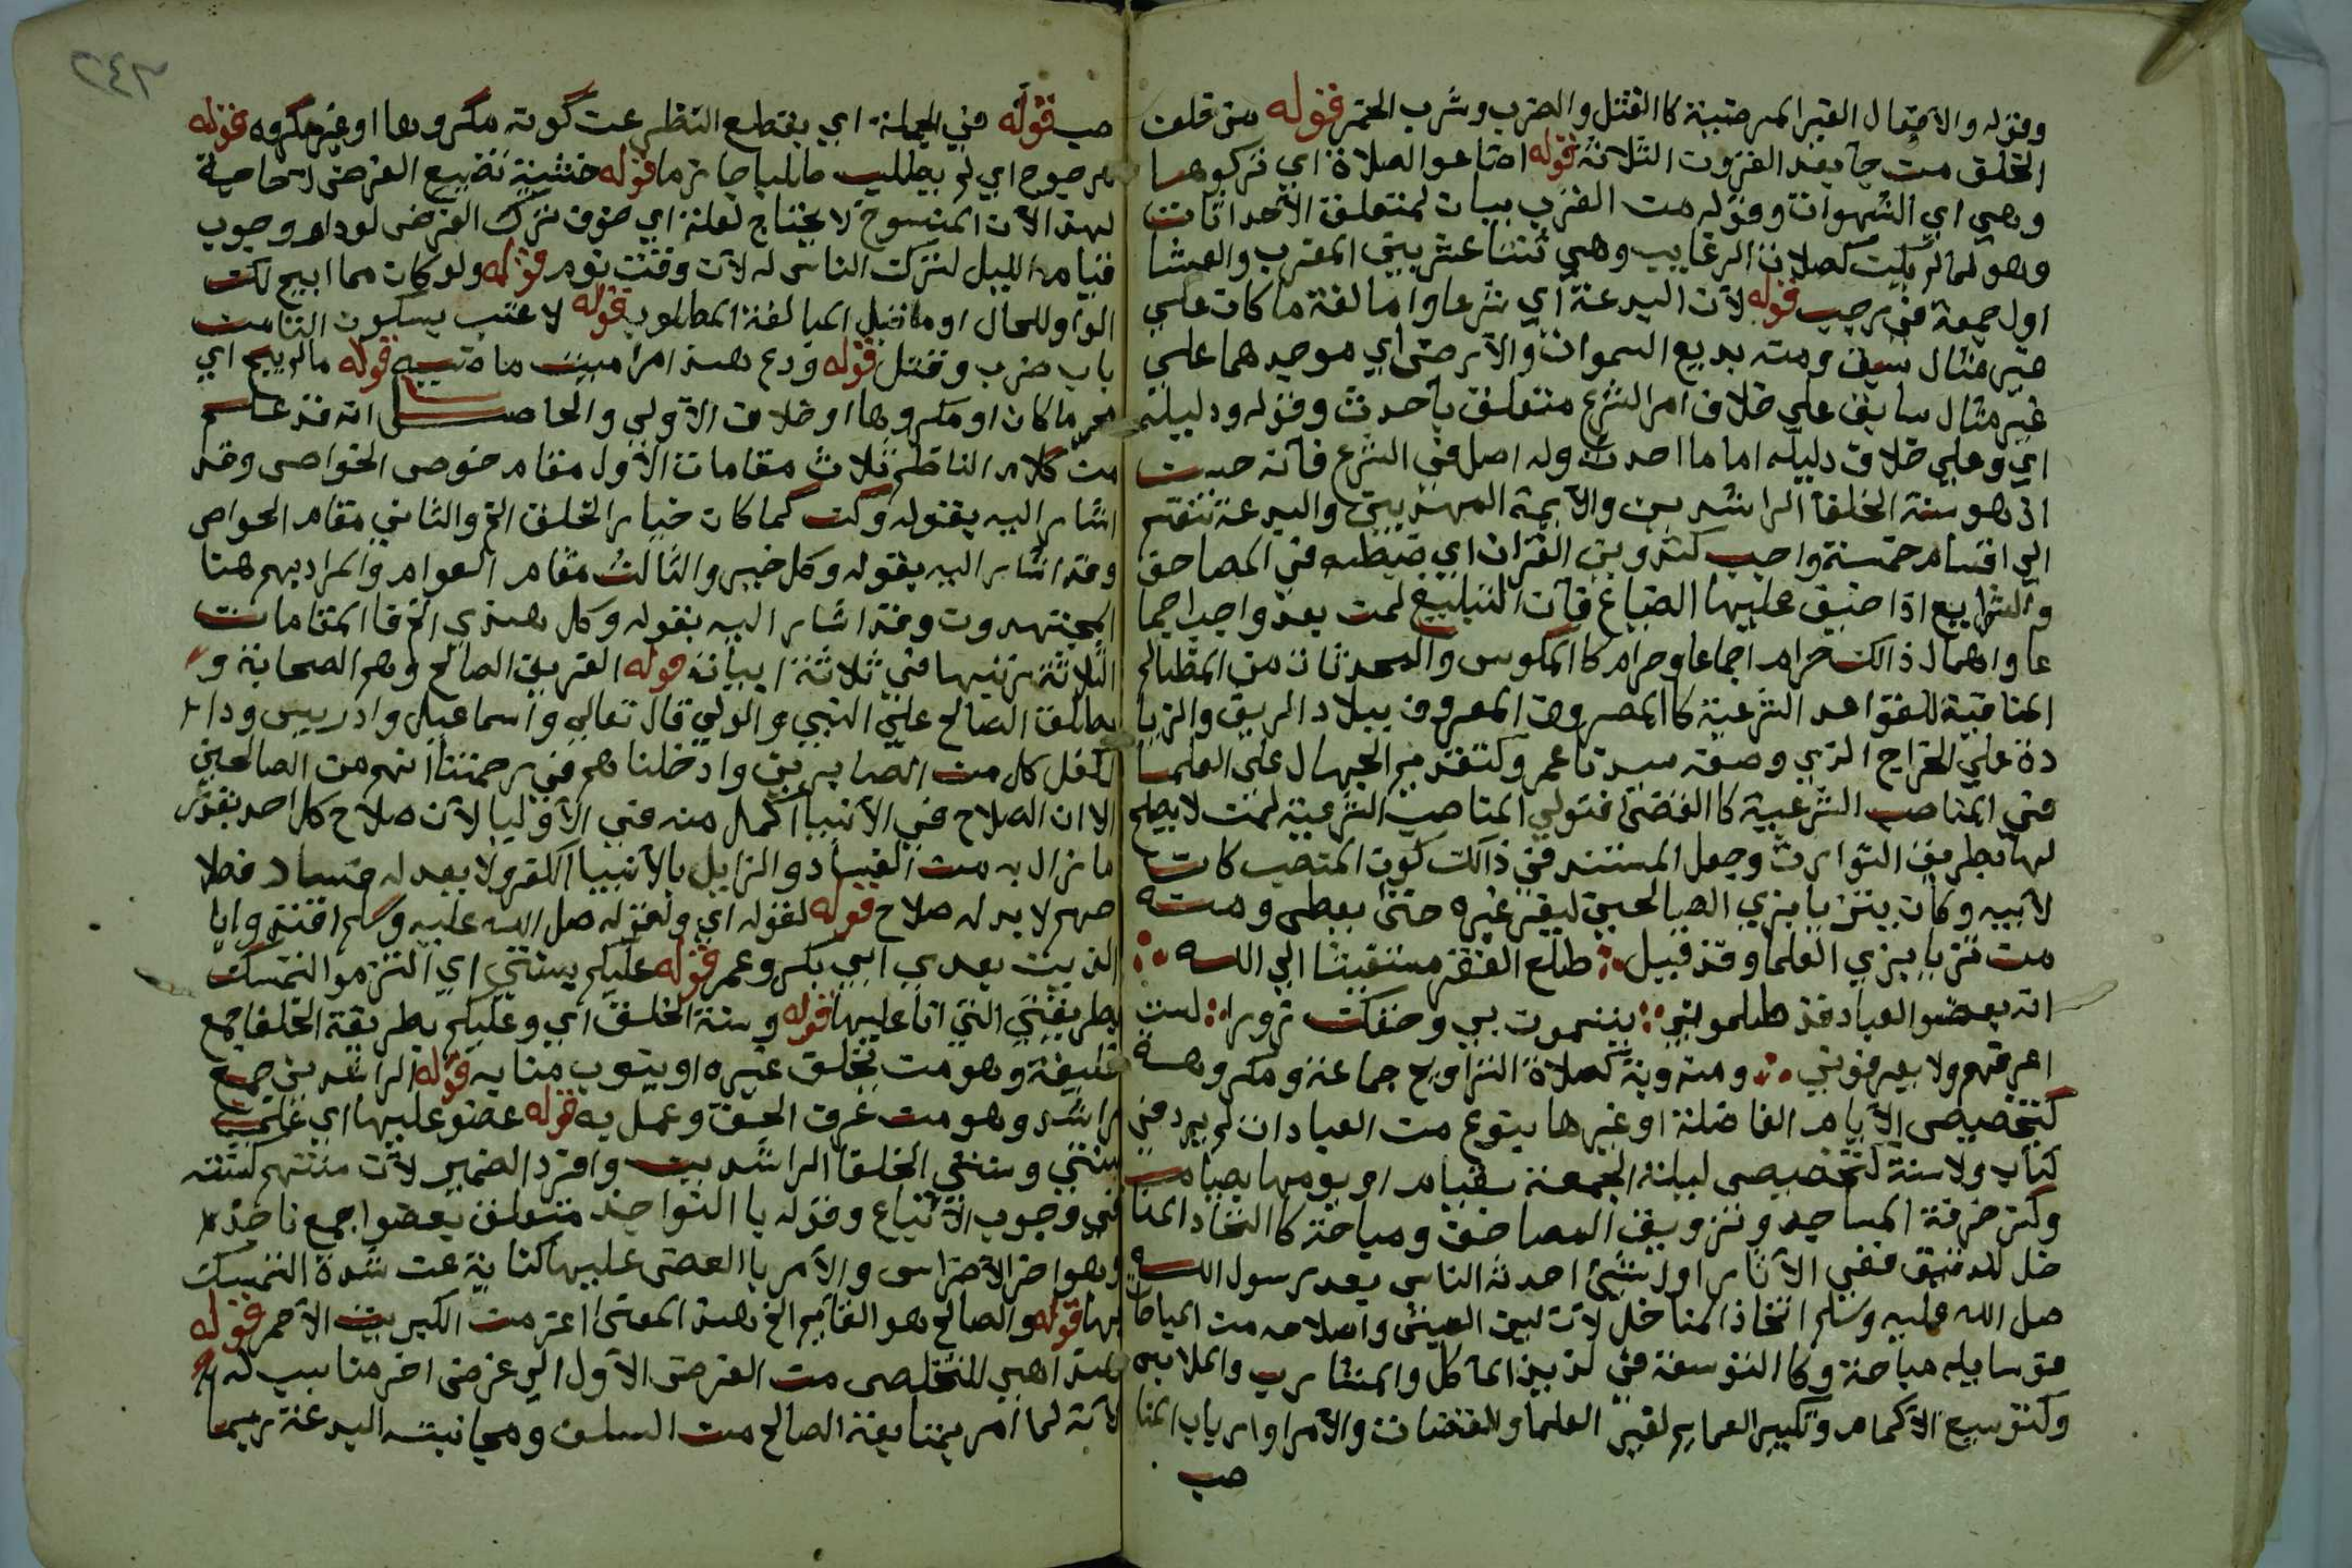 وقوله والافعال الغير المرضية كالقتل والضرب وشرب الخمر قوله من خلف
الخلق من جا بعد القرون الثلاثة قوله اضاعوا الصلاة اي تركوها
وهي اي الشهوات وقوله من القرب بيان لمتعلق الاحداثات
وهو لما لم يكن كصلاة الرغايب وهي ثنتا عشر بين المغرب والعشا
اول جمعة في رجب قوله لان البدعة اي شرعا واما لغة ما كان على
غير مثال سبق ومنه بديع السموات والارض اي موجدهما على
غير مثال سابق على خلاف امر الشرع متعلق باحدث وقوله ودليله
اي وعلى خلاف دليله اما ما احدث وله اصل في الشرع فانه حسن
اذ هو سنة الخلفا الراشدين والايمة المهديين والبدعة تنقسم
الى اقسام خمسة واجب كتدوين القران اي ضبطه في المصاحف
والشرايع اذا خيف عليها الضياع فان التبليغ لمن بعد واجب اجما
عا واهمال ذالك حرام اجماعا وحرام كالمكوس والمحدثات من المظالم
المنافية للقواعد الشرعية كالمصروف المعروف ببلاد الريف والزيا
دة على الخراج الذي وضعه سيدنا عمر وكتقديم الجهال على العلما
في المناصب الشرعية كالقضى فتولي المناصب الشرعية لمن لا يصلح
لها بطريق التوارث وجعل المستند في ذالك كون المنصب كان
لابيه وكان يتزيا بزي الصالحين ليغر غيره حتى يعطى ومنه
من تزيا بزي العلما وقد قيل طلع الفقر مستغيثا الى الله
ان بعض العباد قد ظلموني يتسمون بي وحقك زورا لست
اعرفهم ولا يعرفوني ومندوبة كصلاة التراويح جماعة ومكروهة
كتخصيص الايام الفاضلة او غيرها بنوع من العبادات لم يرد في
كتاب ولا سنة كتخصيص ليلة الجمعة بقيام او يومها بصيام
وكزخرفة المساجد وتزويق المصاحف ومباحة كاتخاذ المنا
خل للدقيق ففي الاثار اول شيء احدثه الناس بعد رسول الله
صل الله عليه وسلم اتخاذ المناخل لان لين العيش واصلاحه من المباحات
فوسايله مباحة وكالتوسعة في لذيذ الماكل والمشارب والملابس
وكتوسيع الاكمام وتكبير العمايم لغير العلما والقضات والامرا وارباب المنا
صب
صب قوله في الجملة اي بقطع النظر عن كونه مكروها او غير مكروه قوله
مرجوح اي لم يطلب طلبا جازما قوله خشية تضييع الفرض لا حاجة
لهذا لان المنسوخ لا يحتاج لعلة اي خوف ترك الفرض لو دام وجوب
قيام الليل لتركت الناس له لان وقت نوم قوله ولو كان مما ابيح لكن
الواو للحال او ما قبل المبالغة المطلوب قوله لا عتب بسكون التا من
باب ضرب وقتل قوله ودع هذا امر اميت ماضيه قوله مالم يبح اي
محرما كان او مكروها او خلاف الاولى والحاصل انه قد علم
من كلام الناظم ثلاث مقامات الاول مقام خوص الخواص وقد
اشار اليه بقوله وكن كما كان خيار الخلق الخ والثاني مقام الخواص
وقد اشار اليه بقوله وكل خير والثالث مقام العوام والمراد بهم هنا
المجتهدون وقد اشار اليه بقوله وكل هدي الخ فا المقامات
الثلاثة مرتبها في ثلاثة ابياته قوله الفريق الصالح وهم الصحابة و
يطلق الصالح على النبي والولي قال تعالى واسماعيل وادريس وذا
الكفل كل من الصابرين وادخلناهم في رحمتنا انهم من الصالحين
الا ان الصلاح في الانبيا اكمل منه في الاوليا لان صلاح كل احد بقدر
ما زال به من الفساد والزايل بالانبيا الكفر ولا يعدله فساد فصلا
حهم لا يعدله صلاح قوله لقوله اي ولقوله صل الله عليه وسلم اقتدوا با
الذين بعدي ابي بكر وعمر قوله عليكم بسنتي اي التزموا التمسك
بطريقتي التي انا عليها قوله وسنة الخلف اي وعليكم بطريقة الخلفا جمع
خليفة وهو من يخلف غيره او ينوب منابه قوله الراشدين جمع
راشد وهو من عرف الحق وعمل به قوله عضو عليها اي على
سنتي وسنتي الخلفا الراشدين وافرد الضمير لان سنتهم كسنته
في وجوب الاتباع وقوله با النواجذ متعلق بعضوا جمع ناجذ
وهو اخر الاضراس والامر با العض عليها كناية عن شدة التمسك
بها قوله والصالح هو القايم الخ هذا المعنى اعز من الكبريت الاحمر قوله
هذا هي للتخلص من الغرض الاول الى غرض اخر مناسب له
لانه لما امر بمتابعة الصالح من السلف ومجانبته البدعة ربما